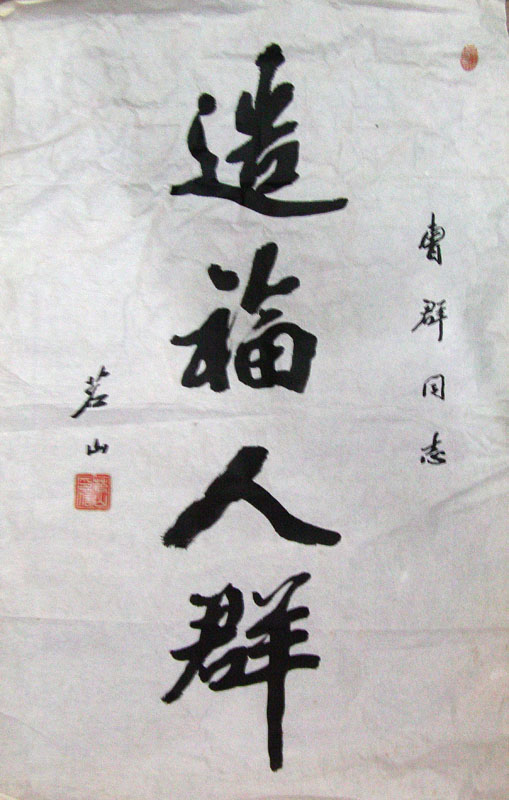 曹群同志
造福人群
茗山